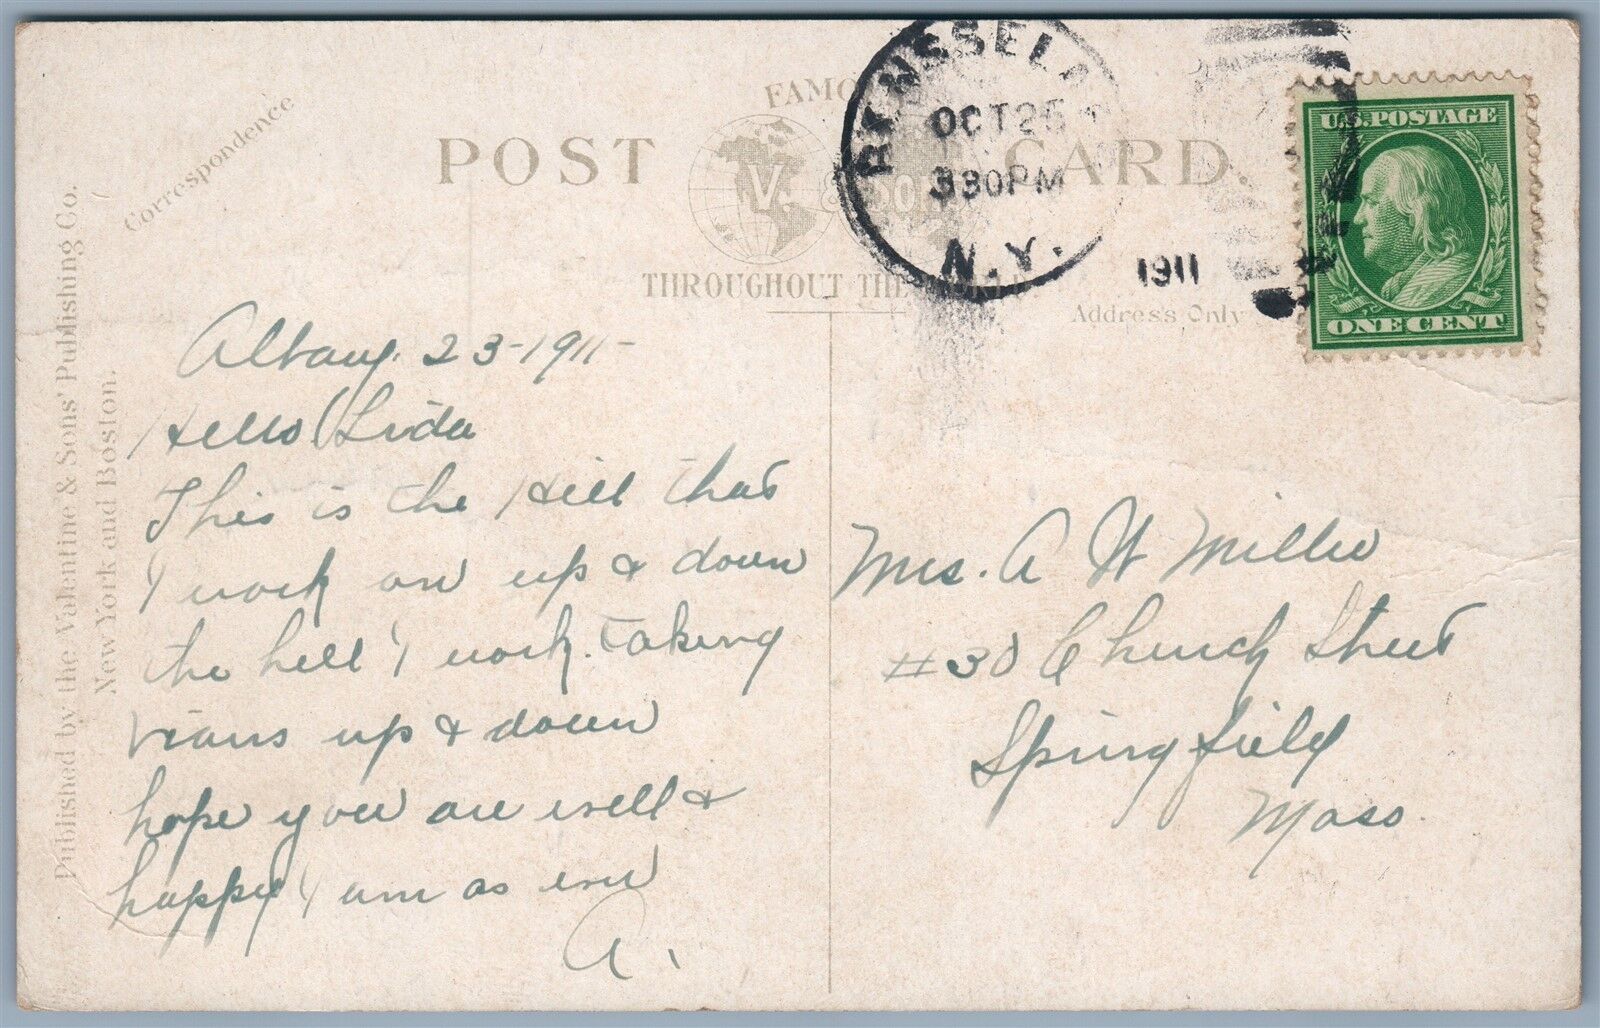 Correspondence
POST CARD.
FAMO
V. & SON
THROUGHOUT THE WORLD.
Address Only
Published by the Valentine & Sons' Publishing Co.
New York and Boston.
RENSSELA
OCT 25
330PM
N.Y.
1911
U.S. POSTAGE
ONE CENT
Albany. 23-1911-
Hello Lida
This is the Hill that
I work on up & down
the hill I work. taking
trains up & down
hope you are well &
happy I am as ever
A.
Mrs. A W Miller
#30 Church Street
Springfield
Mass.